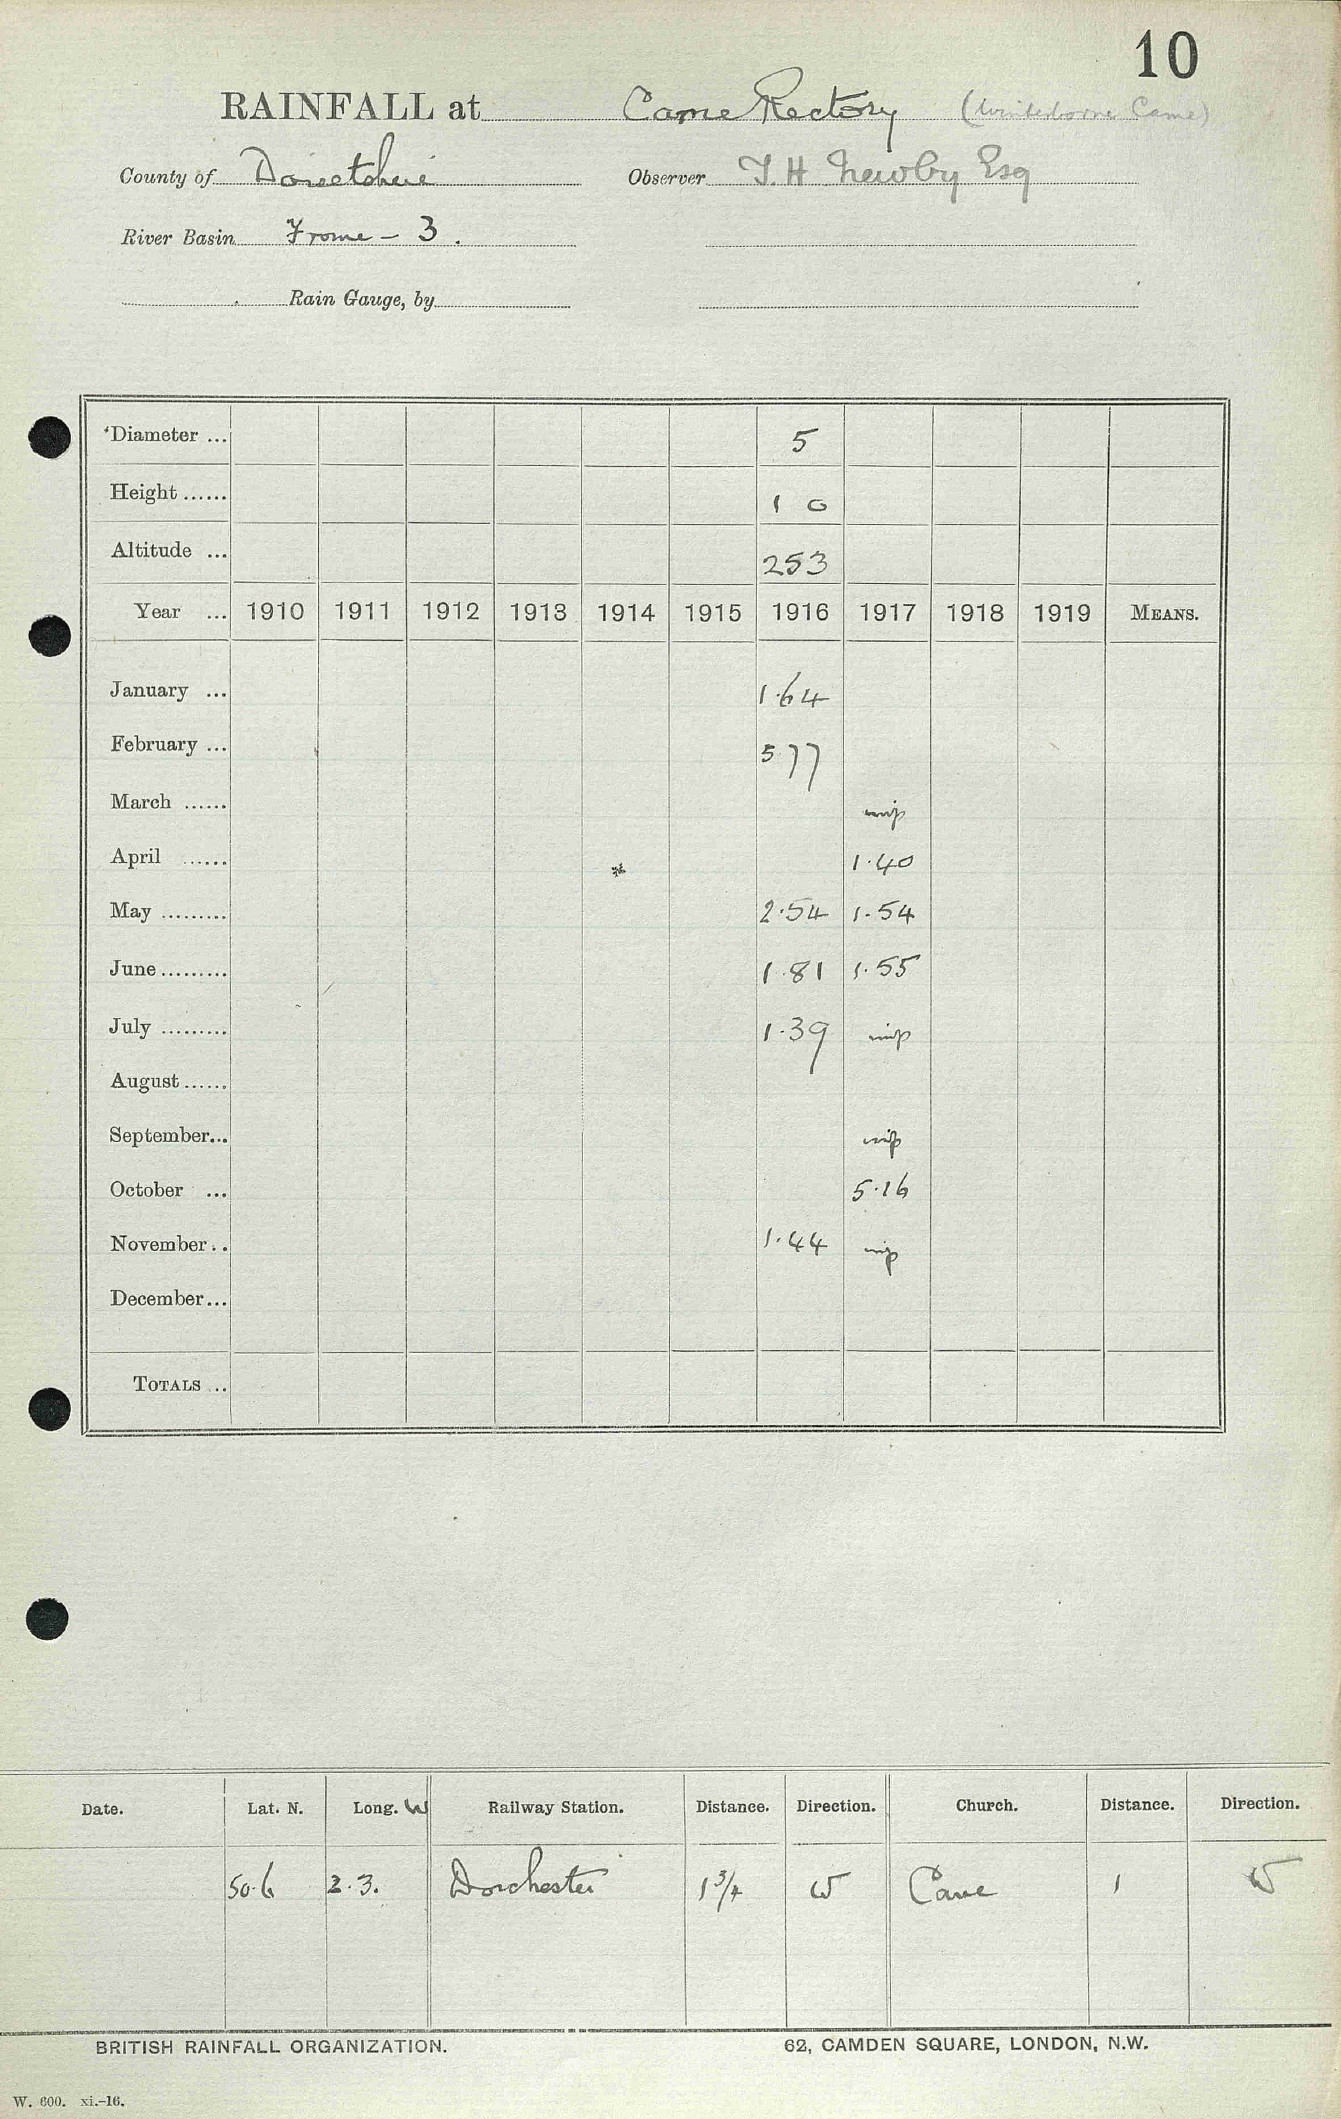 10
RAINFALL at Came Rectory (Winterborne Came)
County of Dorsetshire Observer T. H Newby Esq
River Basin Frome - 3.
Rain Gauge, by
Diameter ... 5
Height ...... 1 0
Altitude ... 253
Year ... 1910 1911 1912 1913 1914 1915 1916 1917 1918 1919 MEANS.
January ... 1.64
February ... 5.77
March ......
April ...... * 1.40
May ......... 2.54 1.54
June ......... 1.81 1.55
July ......... 1.39
August ......
September...
October ... 5.16
November .. 1.44
December...
TOTALS ...
Date. Lat. N. Long. W Railway Station. Distance. Direction. Church. Distance. Direction.
50.6 2.3. Dorchester 1 3/4 W Came 1 W
BRITISH RAINFALL ORGANIZATION. 62, CAMDEN SQUARE, LONDON, N.W.
W. 600. xi.-16.